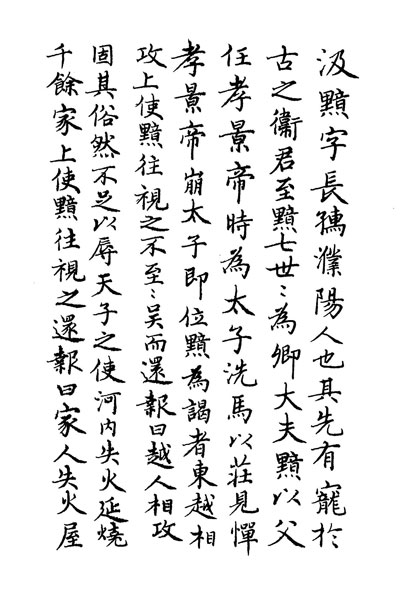 汲黯字長孺濮陽人也其先有寵於
古之衞君至黯七世〻為卿大夫黯以父
任孝景帝時為太子洗馬以莊見憚
孝景帝崩太子即位黯為謁者東越相
攻上使黯往視之不至〻吴而還報曰越人相攻
固其俗然不足以辱天子之使河内失火延燒
千餘家上使黯往視之還報曰家人失火屋